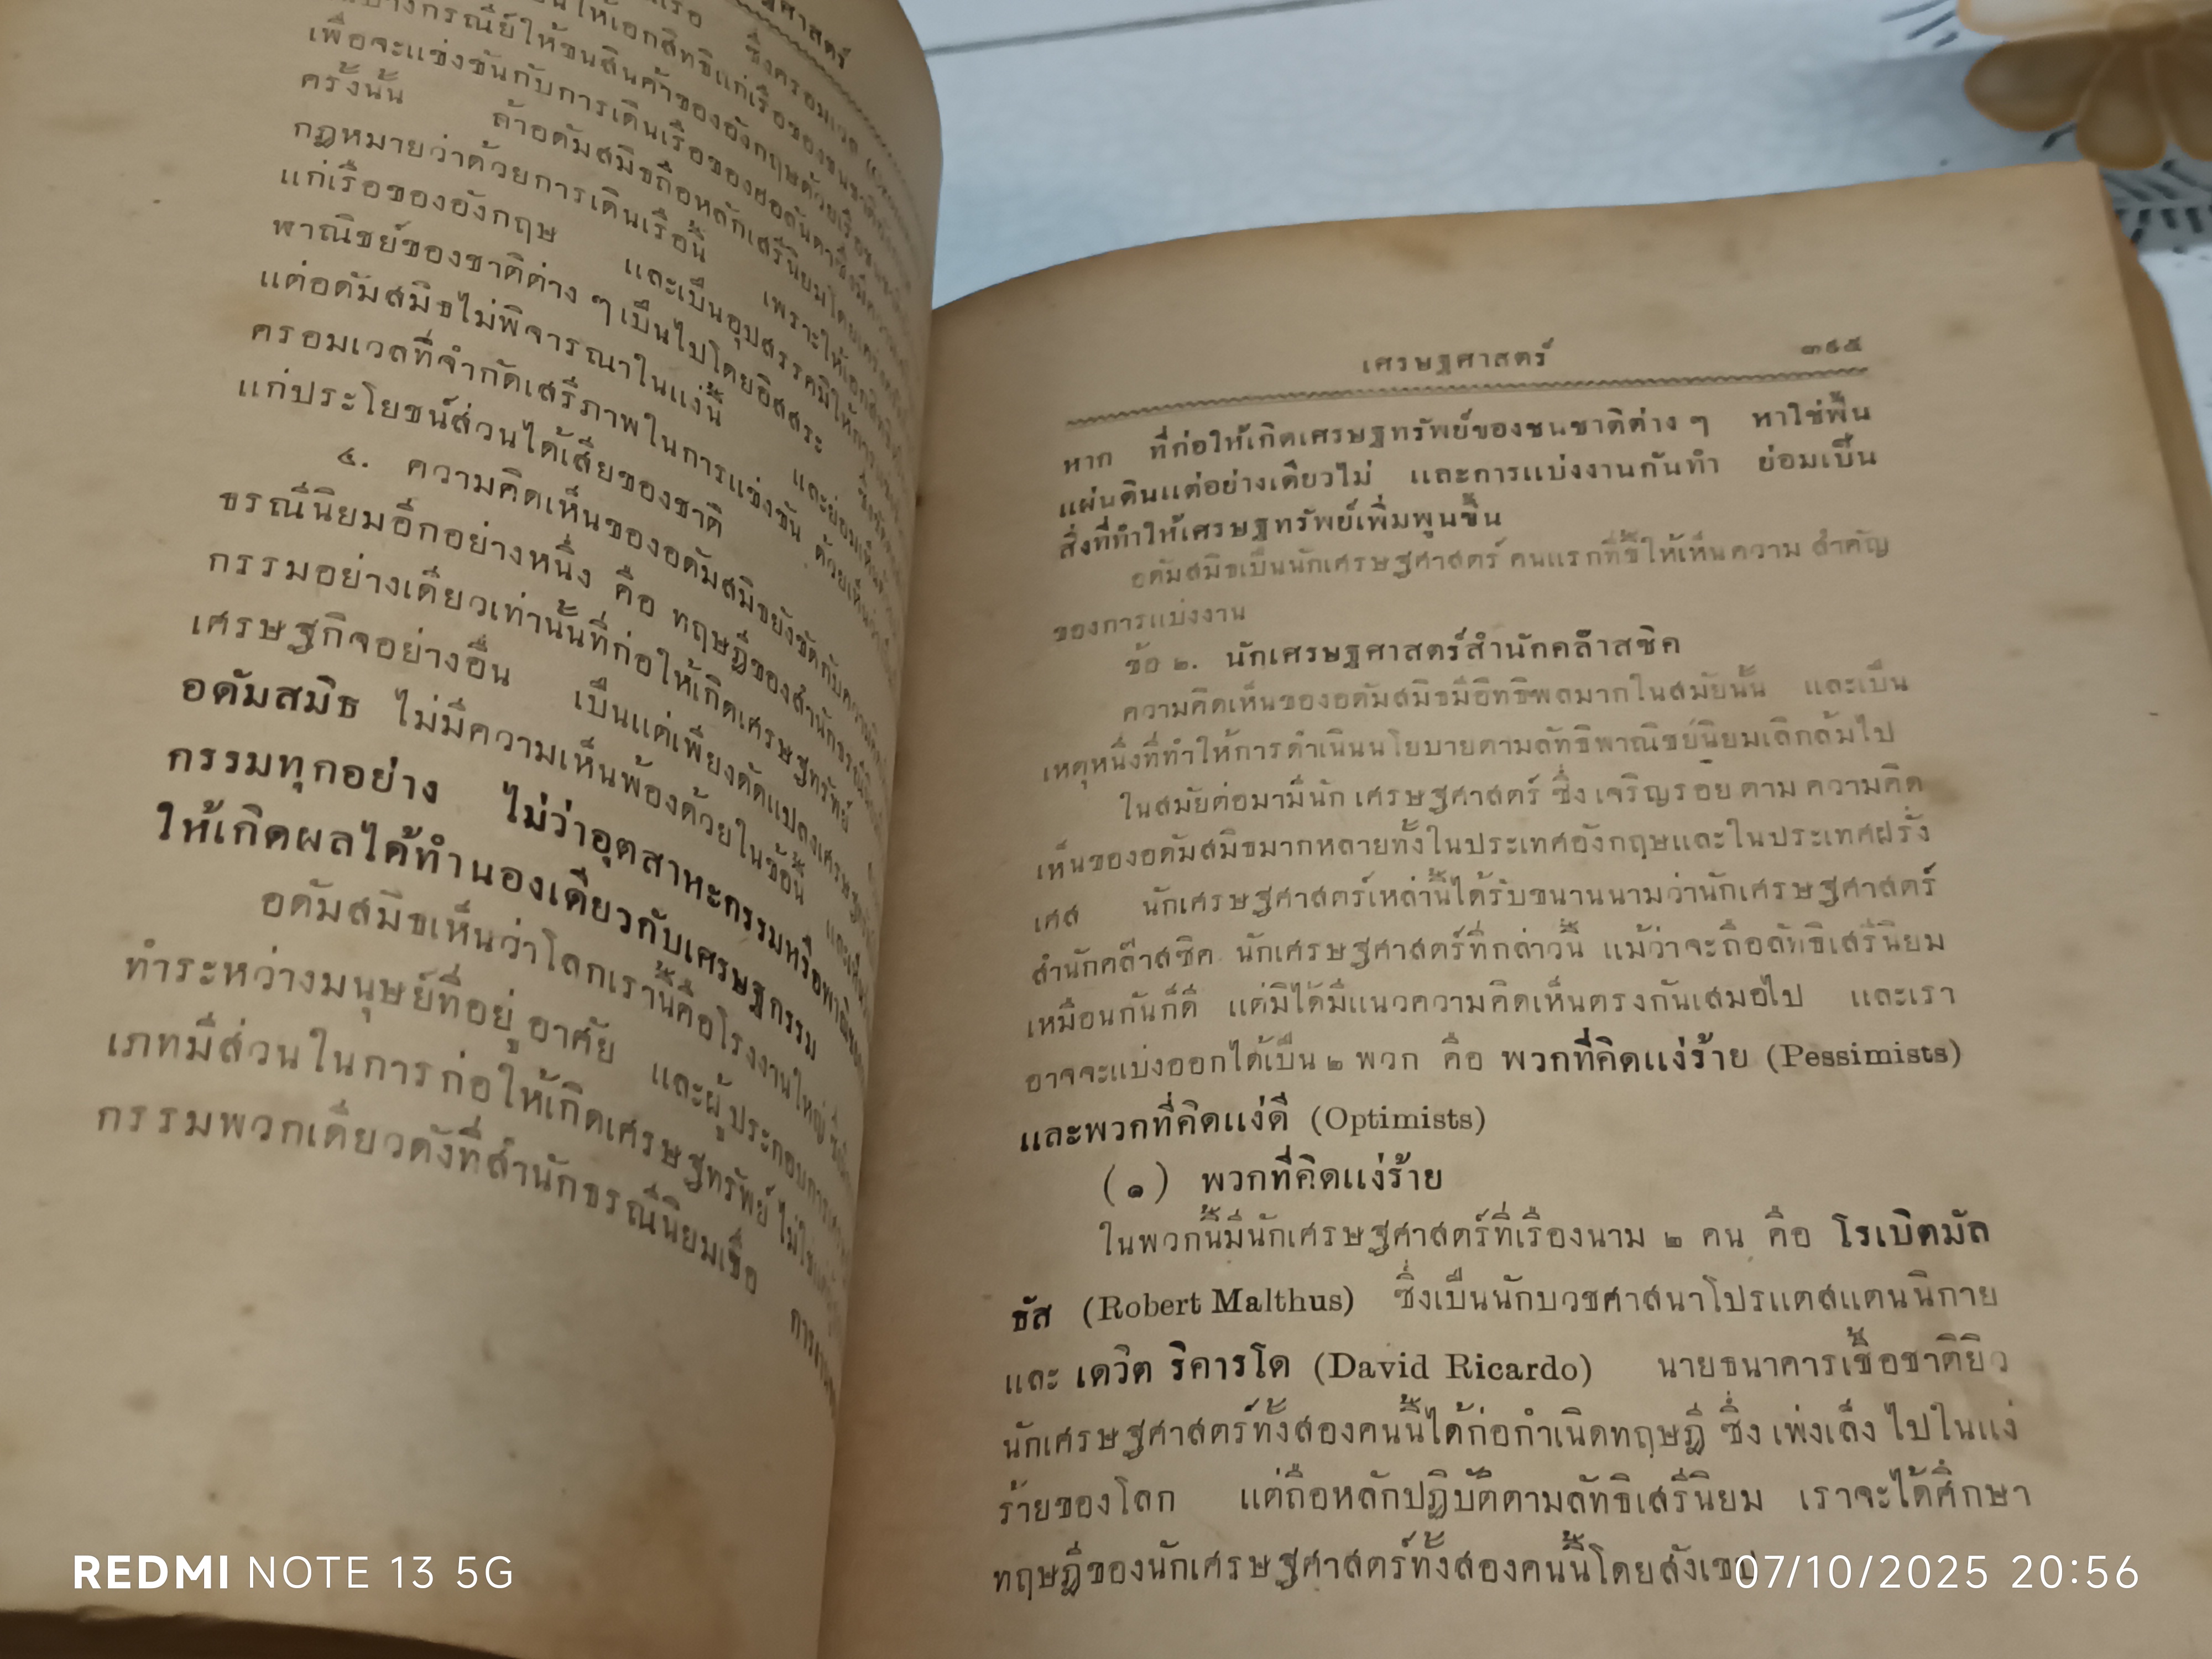 เพื่อจะแข่งขันกับการเดินเรือของฮอลันดาซึ่งมี
ครั้งนั้น ถ้าอดัมสมิธถือหลักเสรีนิยมโดย
กฎหมายว่าด้วยการเดินเรือนี้ เพราะให้เอกสิทธิ
แก่เรือของอังกฤษ และเป็นอุปสรรคมิให้การ
พาณิชย์ของชาติต่าง ๆ เป็นไปโดยอิสสระ
แต่อดัมสมิธไม่พิจารณาในแง่นี้ และย่อมเห็น
ครอมเวลที่จำกัดเสรีภาพในการแข่งขัน ด้วยเห็น
แก่ประโยชน์ส่วนได้เสียของชาติ
๔. ความคิดเห็นของอดัมสมิธยังขัดกับความ
ธรณีนิยมอีกอย่างหนึ่ง คือ ทฤษฎีของสำนักธรณี
กรรมอย่างเดียวเท่านั้นที่ก่อให้เกิดเศรษฐทรัพย์
เศรษฐกิจอย่างอื่น เป็นแต่เพียงดัดแปลงเศรษฐ
อดัมสมิธ ไม่มีความเห็นพ้องด้วยในข้อนี้ และเห็น
กรรมทุกอย่าง ไม่ว่าอุตสาหะกรรมหรือพาณิช
ให้เกิดผลได้ทำนองเดียวกับเศรษฐกรรม
อดัมสมิธเห็นว่าโลกเรานี้คือโรงงานใหญ่
ทำระหว่างมนุษย์ที่อยู่ อาศัย และผู้ประกอบการ
เภทมีส่วนในการก่อให้เกิดเศรษฐทรัพย์ ไม่ใช่
กรรมพวกเดียวดังที่สำนักธรณีนิยมเชื่อ
เศรษฐศาสตร์ ๓๙๕
หาก ที่ก่อให้เกิดเศรษฐทรัพย์ของชนชาติต่าง ๆ หาใช่พื้น
แผ่นดินแต่อย่างเดียวไม่ และการแบ่งงานกันทำ ย่อมเป็น
สิ่งที่ทำให้เศรษฐทรัพย์เพิ่มพูนขึ้น
อดัมสมิธเป็นนักเศรษฐศาสตร์ คนแรกที่ชี้ให้เห็นความ สำคัญ
ของการแบ่งงาน
ข้อ ๒. นักเศรษฐศาสตร์สำนักคล๊าสซิค
ความคิดเห็นของอดัมสมิธมีอิทธิพลมากในสมัยนั้น และเป็น
เหตุหนึ่งที่ทำให้การดำเนินนโยบายตามลัทธิพาณิชย์นิยมเลิกล้มไป
ในสมัยต่อมามีนัก เศรษฐศาสตร์ ซึ่ง เจริญรอย ตาม ความคิด
เห็นของอดัมสมิธมากหลายทั้งในประเทศอังกฤษและในประเทศฝรั่ง
เศส นักเศรษฐศาสตร์เหล่านี้ได้รับขนานนามว่านักเศรษฐศาสตร์
สำนักคล๊าสซิค นักเศรษฐศาสตร์ที่กล่าวนี้ แม้ว่าจะถือลัทธิเสรีนิยม
เหมือนกันก็ดี แต่มิได้มีแนวความคิดเห็นตรงกันเสมอไป และเรา
อาจจะแบ่งออกได้เป็น ๒ พวก คือ พวกที่คิดแง่ร้าย (Pessimists)
และพวกที่คิดแง่ดี (Optimists)
(๑) พวกที่คิดแง่ร้าย
ในพวกนี้มีนักเศรษฐศาสตร์ที่เรืองนาม ๒ คน คือ โรเบิตมัล
ธัส (Robert Malthus) ซึ่งเป็นนักบวชศาสนาโปรแตสแตนนิกาย
และ เดวิต ริคารโด (David Ricardo) นายธนาคารเชื้อชาติยิว
นักเศรษฐศาสตร์ทั้งสองคนนี้ได้ก่อกำเนิดทฤษฎี ซึ่ง เพ่งเล็ง ไปในแง่
ร้ายของโลก แต่ถือหลักปฏิบัติตามลัทธิเสรีนิยม เราจะได้ศึกษา
ทฤษฎีของนักเศรษฐศาสตร์ทั้งสองคนนี้โดยสังเขป
REDMI NOTE 13 5G
07/10/2025 20:56